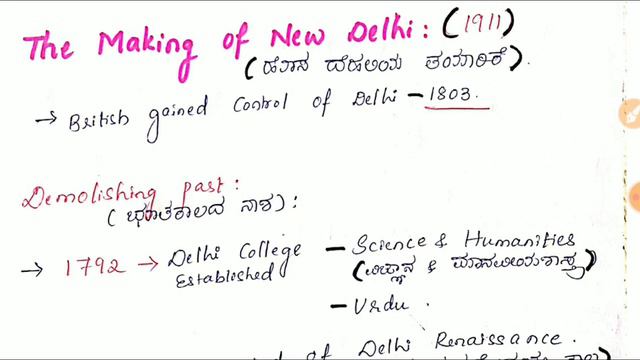 The Making of New Delhi: (1911)
(ಹೊಸ ದೆಹಲಿಯ ತಯಾರಿಕೆ).
→ British gained Control of Delhi – 1803.
Demolishing past:
(ಭೂತಕಾಲದ ನಾಶ):
→ 1792 → Delhi College – Science & Humanities
Established (ವಿಜ್ಞಾನ & ಮಾನವೀಯಶಾಸ್ತ್ರ)
– Urdu.
of Delhi Renaissance.